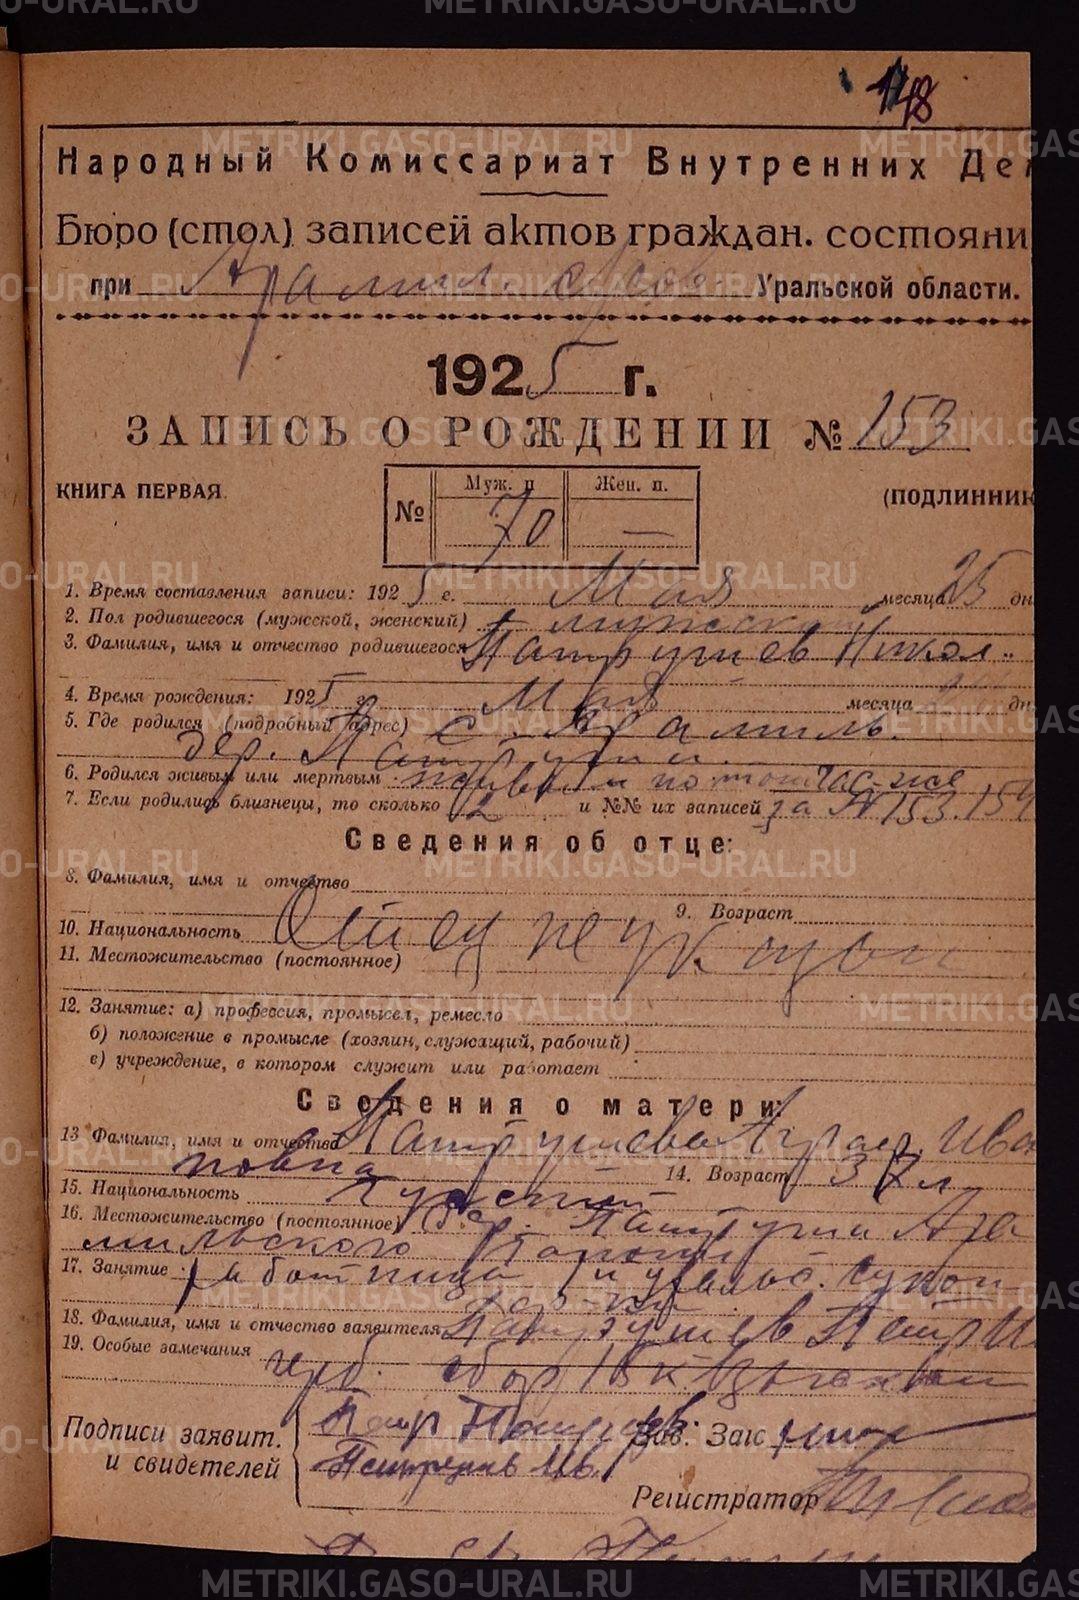 148
Народный Комиссариат Внутренних Дел
Бюро (стол) записей актов граждан. состояни
при Арамил Уральской области.
1925 г.
ЗАПИСЬ О РОЖДЕНИИ № 153
КНИГА ПЕРВАЯ. (ПОДЛИННИК
№ Муж. п 70 Жен. п. —
1. Время составления записи: 1925 г. Мая месяца 25 дн
2. Пол родившегося (мужской, женский) мужской
3. Фамилия, имя и отчество родившегося Патрушев Никол..
4. Время рождения: 1925 г. Мая месяца дн
5. Где родился (подробный адрес) В с. Арамиль.
дер. Патруши.
6. Родился живым или мертвым живым и по тот час же
7. Если родились близнецы, то сколько 2 и №№ их записей за № 153. 154
Сведения об отце:
8. Фамилия, имя и отчество
9. Возраст
10. Национальность Отец не указан
11. Местожительство (постоянное)
12. Занятие: а) профессия, промысел, ремесло
б) положение в промысле (хозяин, служащий, рабочий)
в) учреждение, в котором служит или работает
Сведения о матери:
13 Фамилия, имя и отчество Патрушева Аграф. Ива
новна 14. Возраст 37 л
15. Национальность Русский
16. Местожительство (постоянное) дер. Патруши Ара
мильского
17. Занятие работница сукон
18. Фамилия, имя и отчество заявителя Патрушев Петр И
19. Особые замечания герб. сбор
Подписи заявит. и свидетелей Петр Патрушев
Зав. Загс
Регистратор
METRIKI.GASO-URAL.RU